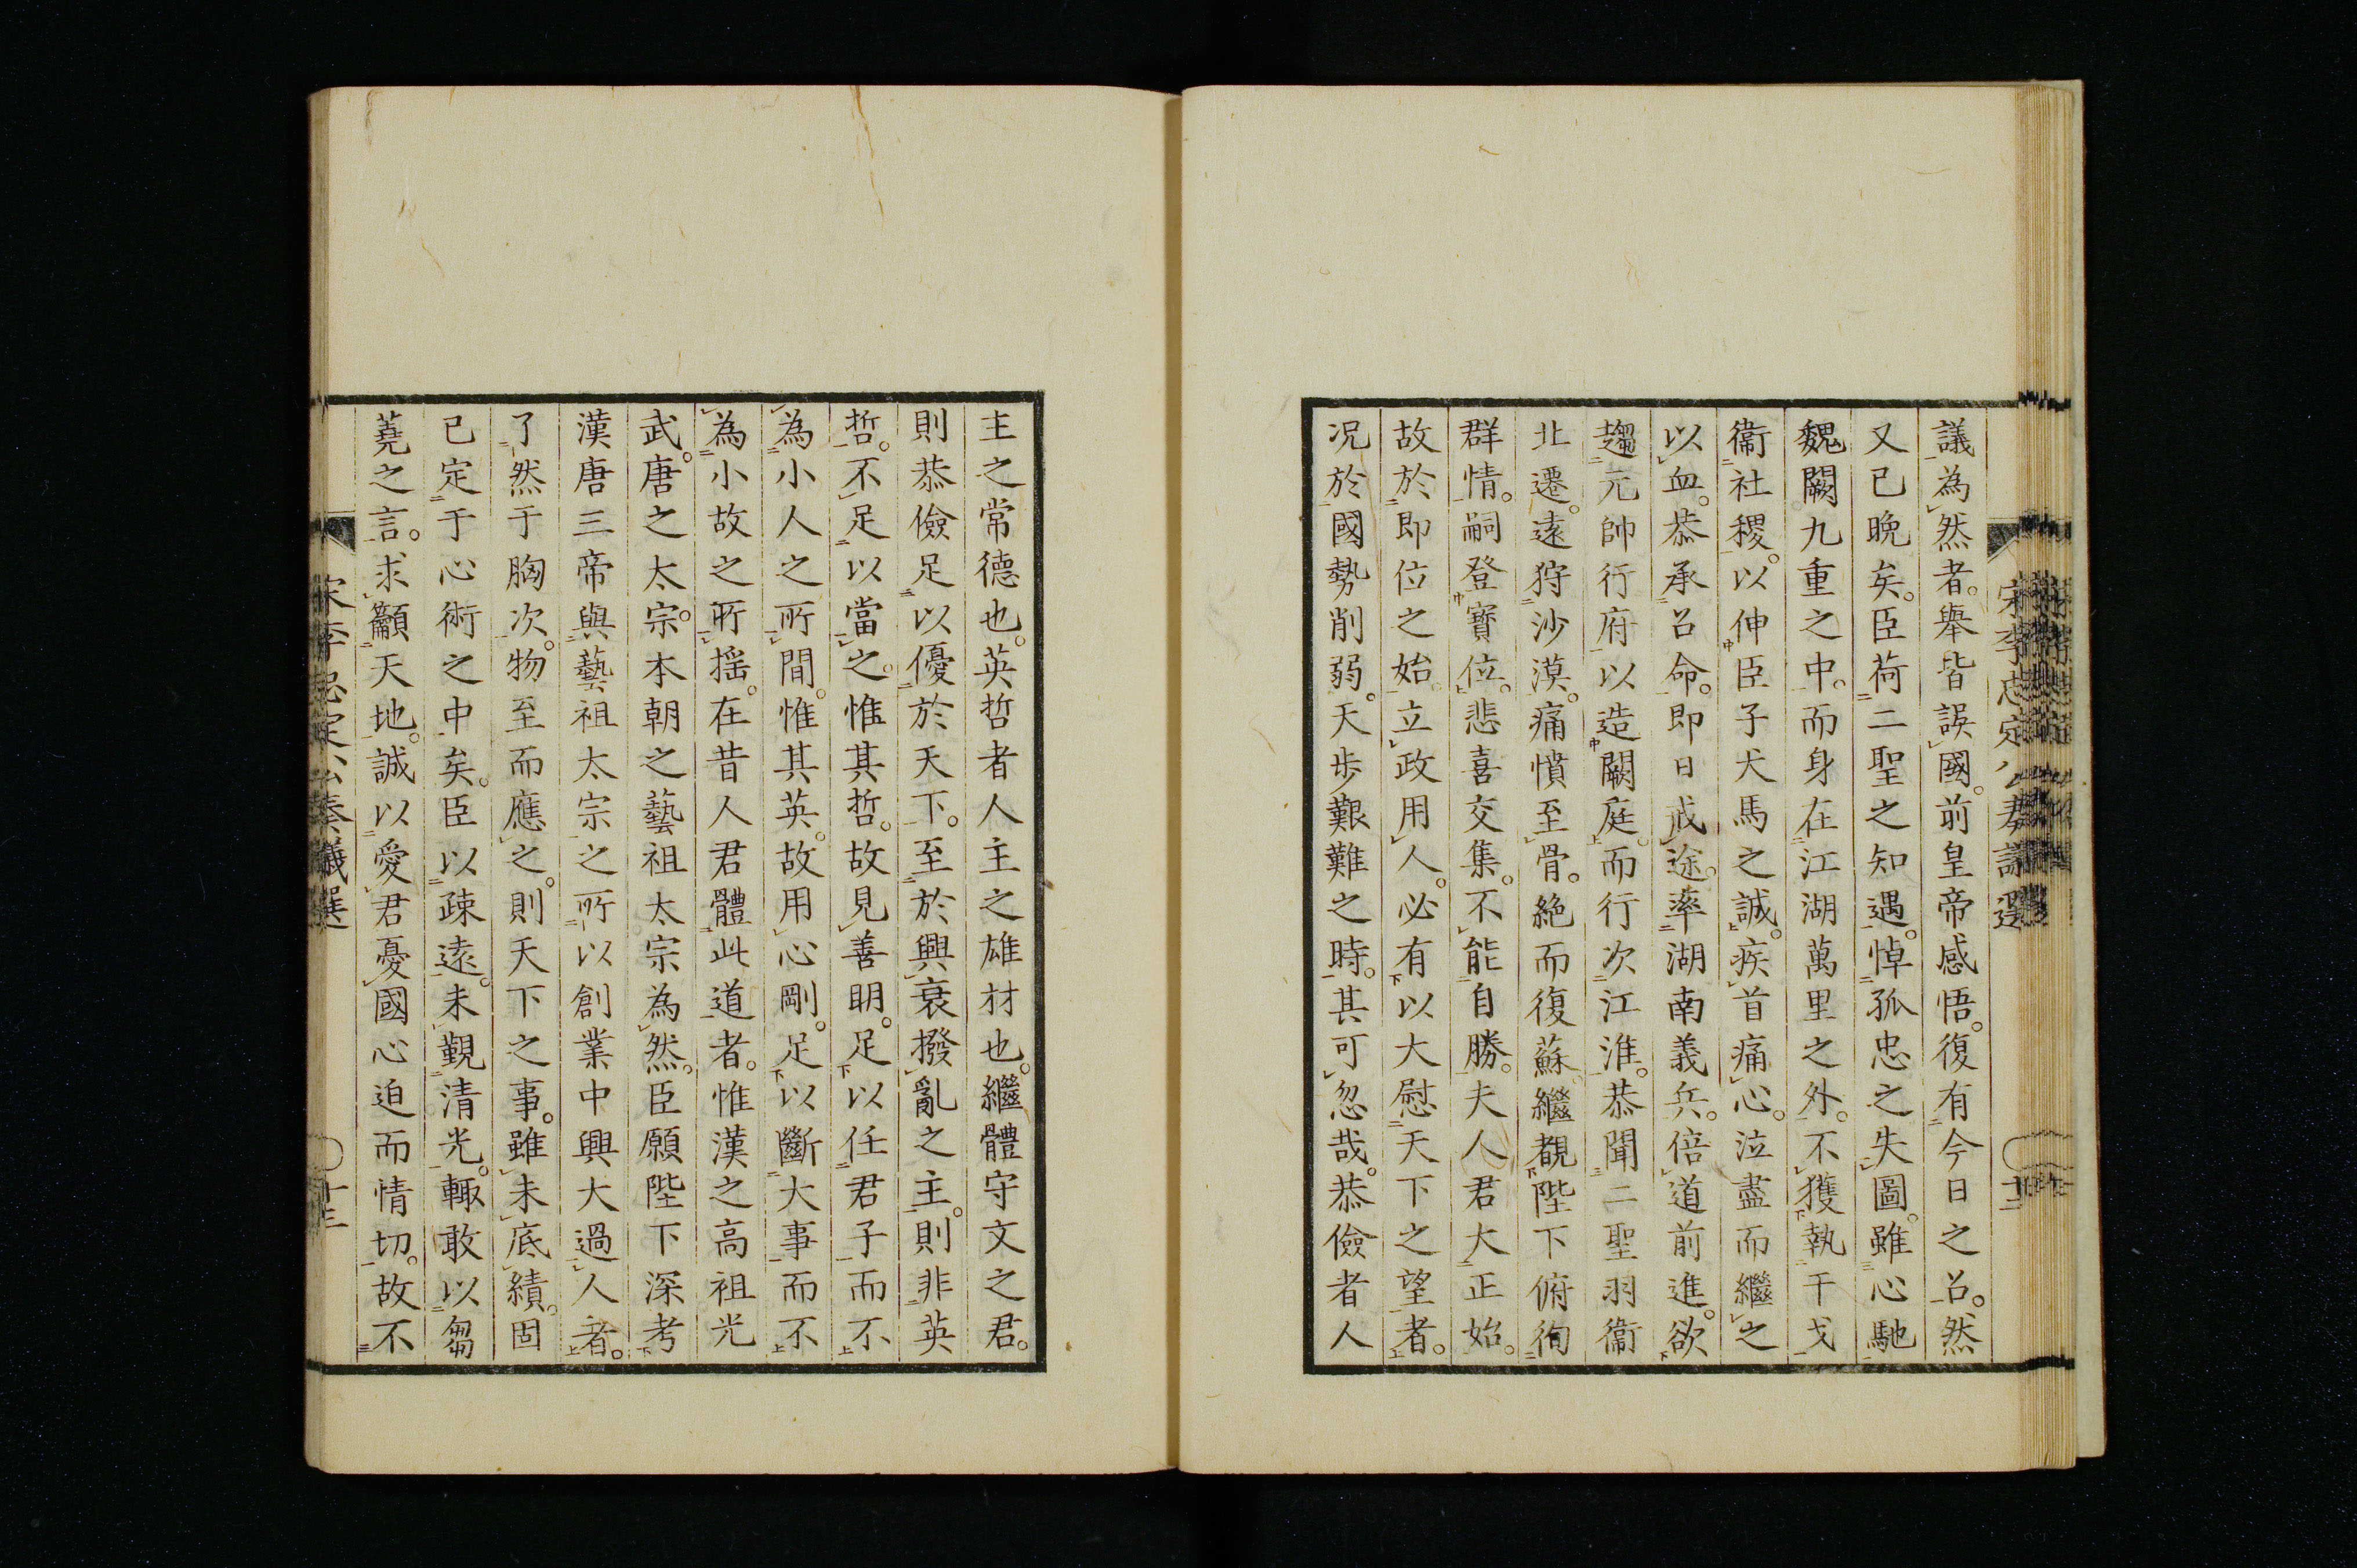 宋李忠定公奏議選
議為然者。舉皆誤國。前皇帝感悟。復有今日之召。然
又已晚矣。臣荷二聖之知遇。悼孤忠之失圖。雖心馳
魏闕九重之中。而身在江湖萬里之外。不獲執干戈
衞社稷。以伸臣子犬馬之誠。疾首痛心。泣盡而繼之
以血。恭承召命。即日戒途。率湖南義兵。倍道前進。欲
趨元帥行府以造闕庭。而行次江淮。恭聞二聖羽衞
北遷。遠狩沙漠。痛憤至骨。絕而復蘇。繼覩陛下俯徇
群情。嗣登寶位。悲喜交集。不能自勝。夫人君大正始。
故於即位之始。立政用人。必有以大慰天下之望者。
况於國勢削弱。天步艱難之時。其可忽哉。恭儉者人
主之常德也。英哲者人主之雄材也。繼體守文之君。
則恭儉足以優於天下。至於興衰撥亂之主。則非英
哲。不足以當之。惟其哲。故見善明。足以任君子而不
為小人之所間。惟其英。故用心剛。足以斷大事而不
為小故之所搖。在昔人君體此道者。惟漢之高祖光
武。唐之太宗。本朝之藝祖太宗為然。臣願陛下深考
漢唐三帝與藝祖太宗之所以創業中興大過人者。
了然于胸次。物至而應之。則天下之事。雖未底績。固
已定于心術之中矣。臣以疎遠。未覲清光。輙敢以芻
蕘之言。求籲天地。誠以愛君憂國心迫而情切。故不
宋李忠定公奏議選
十三